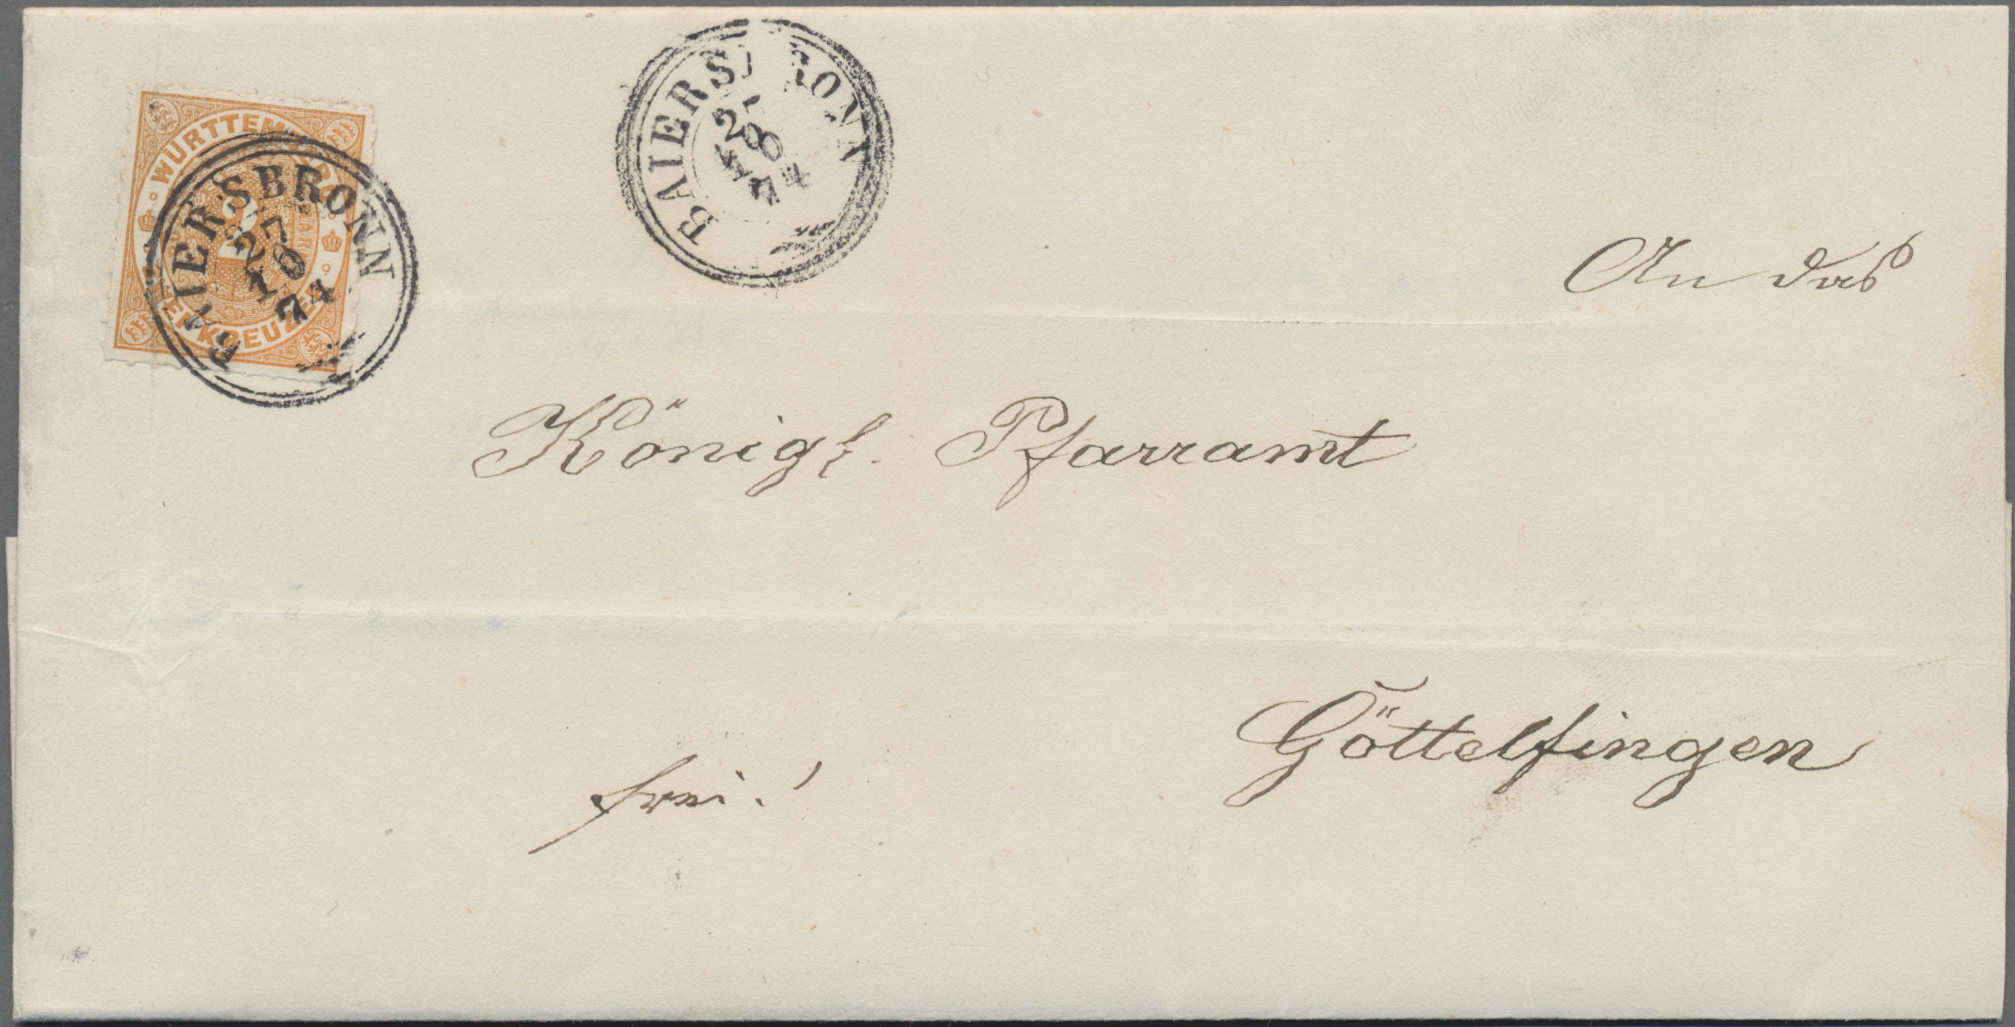 WÜRTTEMBERG
ZWEI KREUZER
BAIERSBRONN
27
10
74
BAIERSBRONN
28
74
An das
Königl. Pfarramt
Göttelfingen
frei!